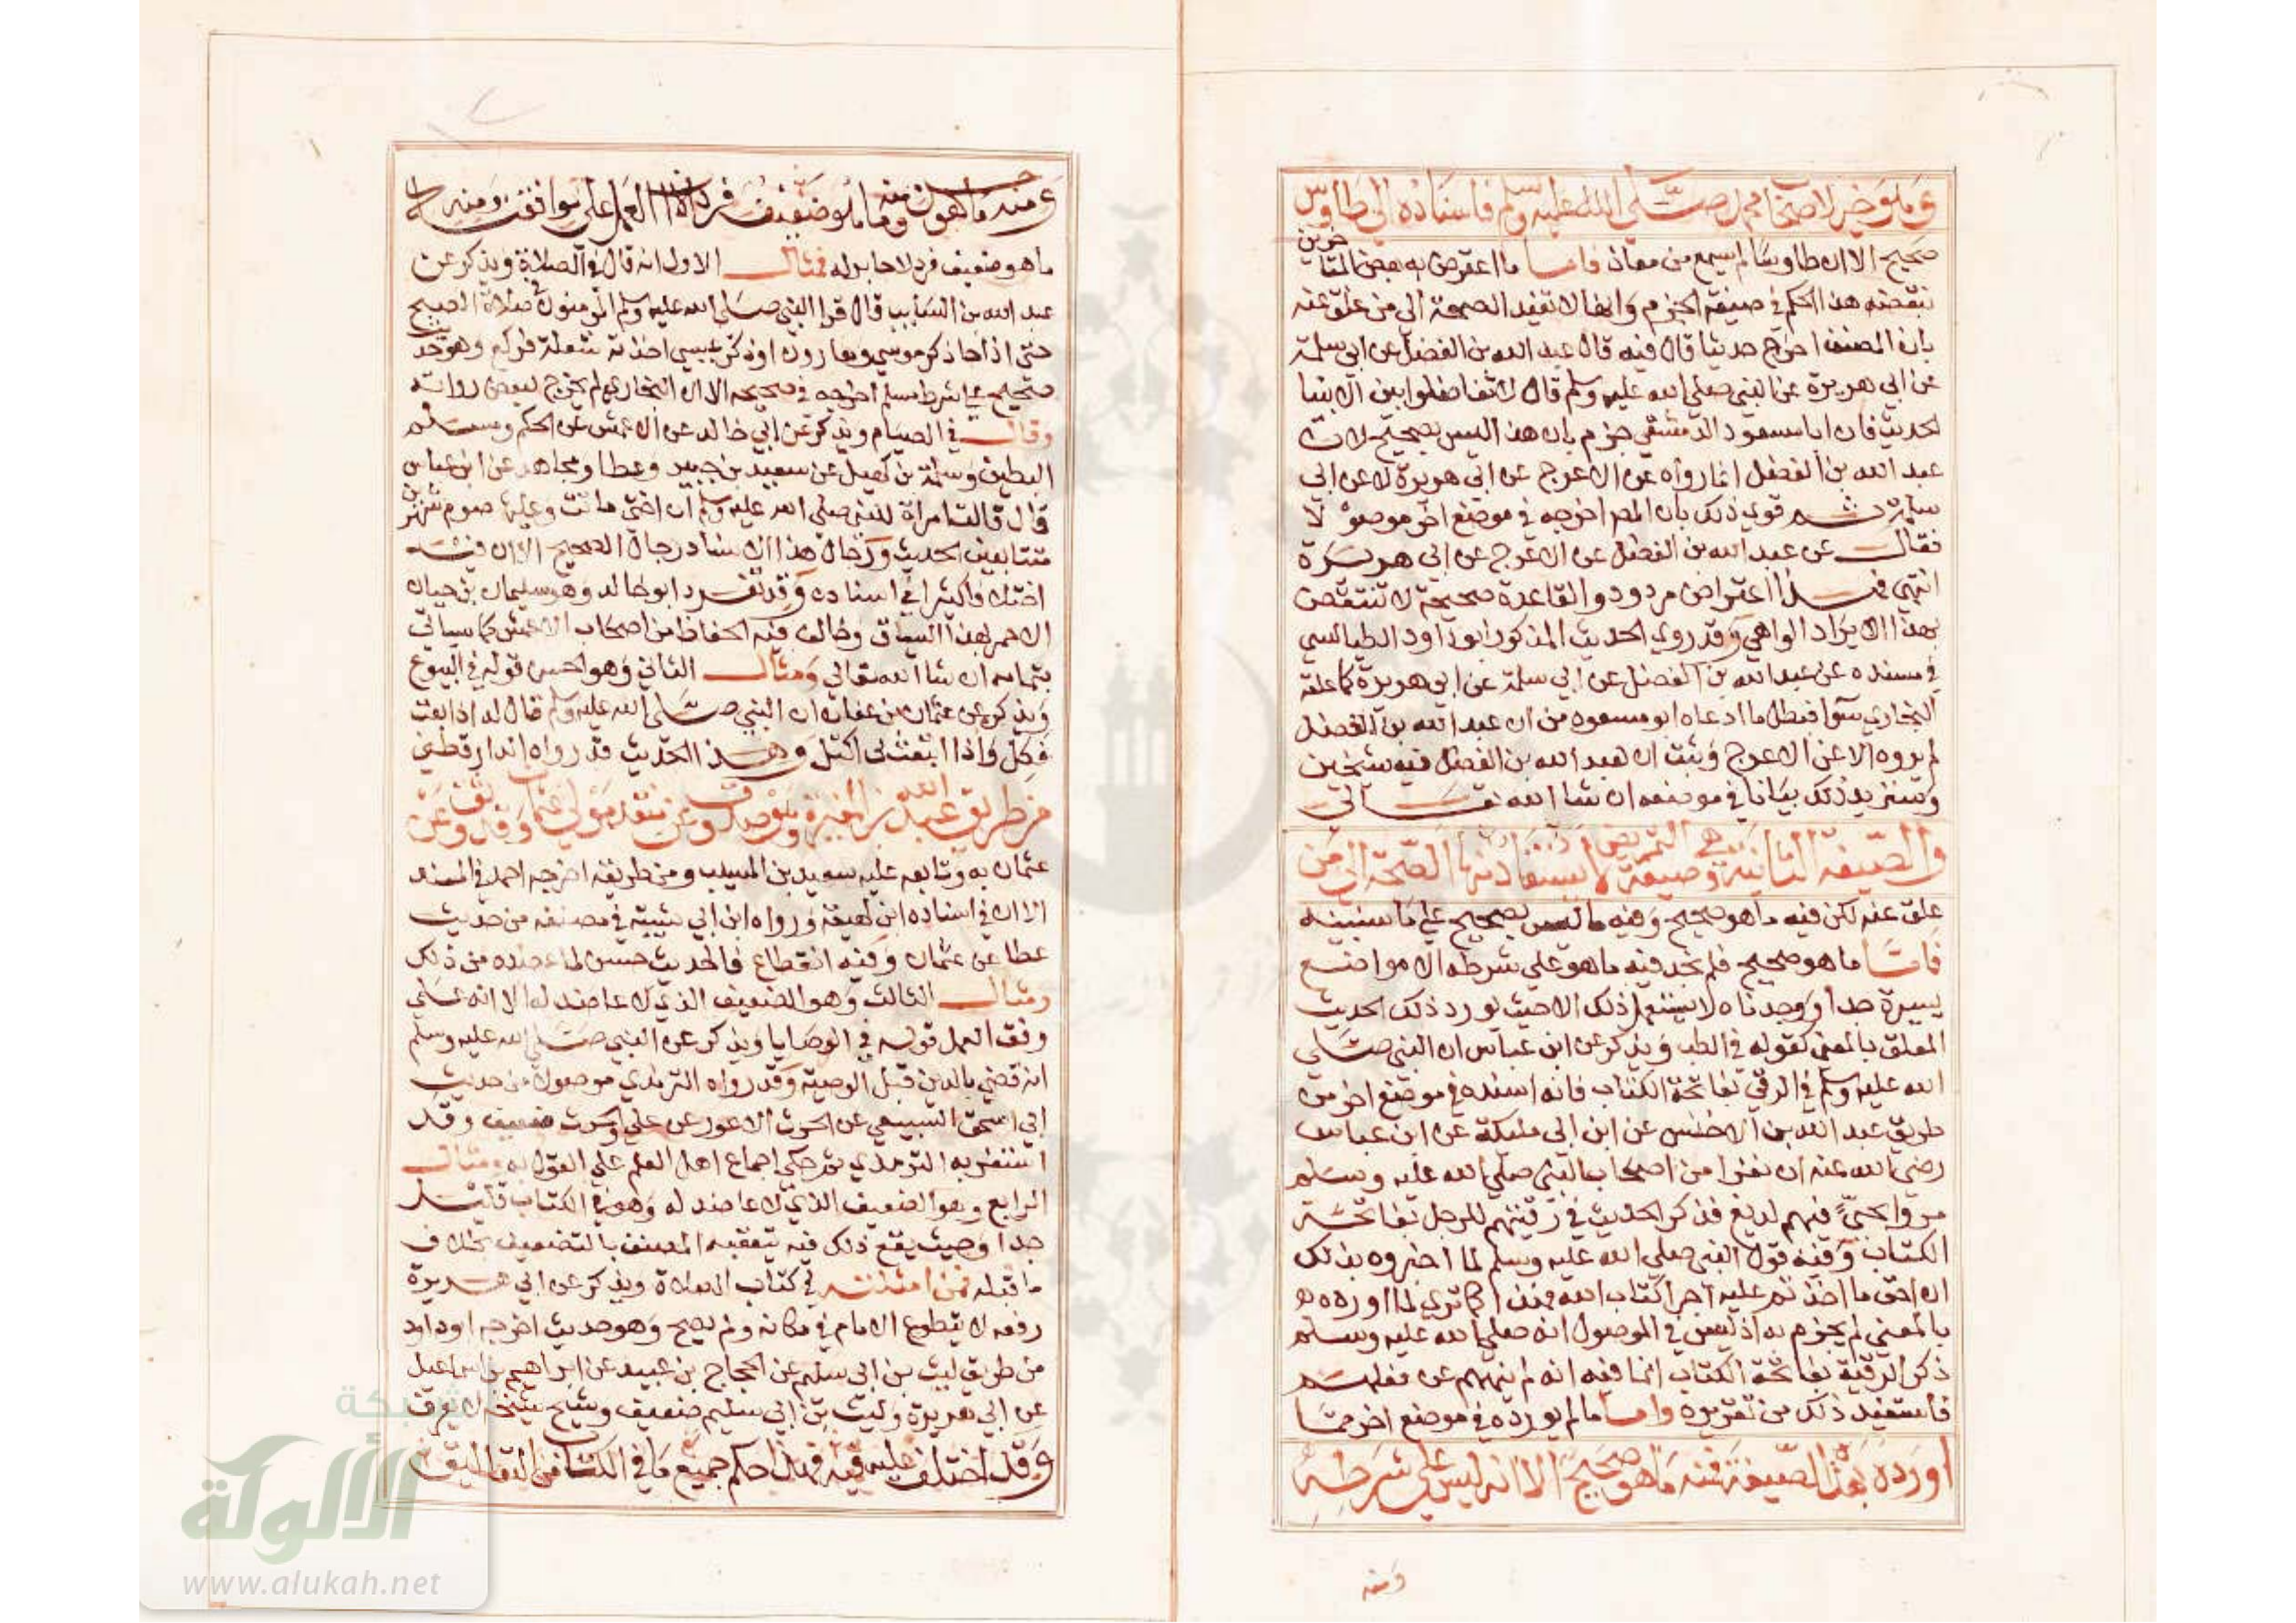 وخير لاصحاب محمد صلى الله عليه وسلم فاسناده الى طاوس
صحيح الا ان طاوسا لم يسمع من معاذ فاما ما اعترض به بعض المتاخرين
بنقضه هذا الحكم في صيغة الجزم وانها لا تفيد الصحة الى من علق عنه
بان المصنف اخرج حديثا قال فيه قال عبد الله بن الفضل عن ابي سلمة
عن ابي هريرة عن النبي صلى الله عليه وسلم قال لا تفاضلوا بين الانبيا
الحديث فان ابا مسعود الدمشقي جزم بان هذا ليس بصحيح لان
عبد الله بن الفضل انما رواه عن الاعرج عن ابي هريرة لا عن ابي
سلمة ثم قوي ذلك بان المص اخرجه في موضع اخر موصولا
فقال عن عبد الله بن الفضل عن الاعرج عن ابي هريرة
انتهى فهذا اعتراض مردود والقاعدة صحيحة لا تنتقض
بهذا الايراد الواهي وقد روى الحديث المذكور ابو داود الطيالسي
في مسنده عن عبد الله بن الفضل عن ابي سلمة عن ابي هريرة كما علقه
البخاري سوا فبطل ما ادعاه ابو مسعود من ان عبد الله بن الفضل
لم يروه الا عن الاعرج وثبت ان لعبد الله بن الفضل فيه شيخين
وسنزيد ذلك بيانا في موضعه ان شا الله تعالى
والصيغة الثانية وهي صيغة التمريض لا يستفاد منها الصحة الى من
علق عنه لكن فيه ما هو صحيح وفيه ما ليس بصحيح على ما سنبينه
فاما ما هو صحيح فلم نجد فيه ما هو على شرطه الا مواضع
يسيرة جدا ووجدناه لا يستعمل ذلك الا حيث يورد ذلك الحديث
المعلق بالمعنى كقوله في الطب ويذكر عن ابن عباس ان النبي صلى
الله عليه وسلم في الرقي بفاتحة الكتاب فانه اسنده في موضع اخر من
طريق عبد الله بن الاخنس عن ابن ابي مليكة عن ابن عباس
رضي الله عنه ان نفرا من اصحاب النبي صلى الله عليه وسلم
مروا بحي فيهم لديغ فذكر الحديث في رقيتهم للرجل بفاتحة
الكتاب وفيه قول النبي صلى الله عليه وسلم لما اخبروه بذلك
ان احق ما اخذتم عليه اجرا كتاب الله فهذا كما ترى لما اورده
بالمعنى لم يجزم به اذ ليس في الموصول انه صلى الله عليه وسلم
ذكر الرقية بفاتحة الكتاب انما فيه انه لم ينههم عن فعلهم
فاستفيد ذلك من تقريره واما ما لم يورده في موضع اخر مما
اورده بهذه الصيغة فمنه ما هو صحيح الا انه ليس على شرطه
ومنه
ومنه ما هو حسن ومنه ما هو ضعيف فرد الا ان العمل على موافقته ومنه
ما هو ضعيف فرد لا جابر له فمثال الاول انه قال في الصلاة ويذكر عن
عبد الله بن السايب قال قرا النبي صلى الله عليه وسلم المومنون في صلاة الصبح
حتى اذا جا ذكر موسى وهارون او ذكر عيسى اخذته سعلة فركع وهو حديث
صحيح على شرط مسلم اخرجه في صحيحه الا ان البخاري لم يخرج لبعض رواته
وقال في الصيام ويذكر عن ابي خالد عن الاعمش عن الحكم ومسلم
البطين وسلمة بن كهيل عن سعيد بن جبير وعطا ومجاهد عن ابن عباس
قال قالت امراة للنبي صلى الله عليه وسلم ان اختي ماتت وعليها صوم شهرين
متتابعين الحديث ورجال هذا الاسناد رجال الصحيح الا ان فيه
اختلافا كثيرا في اسناده وقد تفرد ابو خالد وهو سليمان بن حيان
الاحمر بهذا السياق وخالف فيه الحفاظ من اصحاب الاعمش كما سياتي
بتمامه ان شا الله تعالى ومثال الثاني وهو الحسن قوله في البيوع
ويذكر عن عثمان بن عفان ان النبي صلى الله عليه وسلم قال له اذا بعت
فكل واذا ابتعت فاكتل وهذا الحديث قد رواه الدارقطني
من طريق عبيد الله بن المغيرة وهو صدوق عن منقذ مولى عثمان وقد وثق عن
عثمان به وتابعه عليه سعيد بن المسيب ومن طريقه اخرجه احمد في المسند
الا ان في اسناده ابن لهيعة ورواه ابن ابي شيبة في مصنفه من حديث
عطا عن عثمان وفيه انقطاع فالحديث حسن لما عضده من ذلك
ومثال الثالث وهو الضعيف الذي لا عاضد له الا انه على
وفق العمل قوله في الوصايا ويذكر عن النبي صلى الله عليه وسلم
انه قضى بالدين قبل الوصية وقد رواه الترمذي موصولا من حديث
ابي اسحق السبيعي عن الحرث الاعور عن علي والحرث ضعيف وقد
استغربه الترمذي ثم حكى اجماع اهل العلم على القول به ومثال
الرابع وهو الضعيف الذي لا عاضد له وهو في الكتاب قليل
جدا وحيث يقع ذلك فيه يتعقبه المصنف بالتضعيف بخلاف
ما قبله فمن امثلته في كتاب الصلاة ويذكر عن ابي هريرة
رفعه لا يتطوع الامام في مكانه ولم يصح وهو حديث اخرجه ابو داود
من طريق ليث بن ابي سليم عن الحجاج بن عبيد عن ابراهيم بن اسماعيل
عن ابي هريرة وليث بن ابي سليم ضعيف وشيخ شيخه لا يعرف
وقد اختلف عليه فيه فهذا حكم جميع ما في الكتاب من التعاليق
شبكة
الألوكة
www.alukah.net